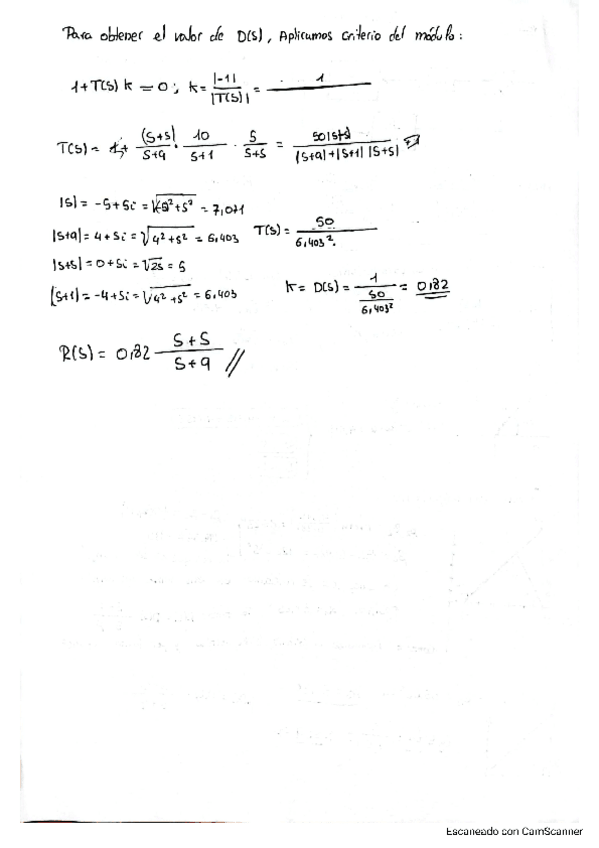 Para obtener el valor de D(s), Aplicamos criterio del módulo:
1+T(s) k = 0 ; k = |-1| / |T(s)| = 1 /
T(s) = (s+5)/(s+9) · 10/(s+1) · 5/(s+5) = 50|s+5| / |s+9|+|s+1| |s+5|
|s| = -5+5i = √(-5²+5²) = 7,071
|s+9| = 4+5i = √(4²+5²) = 6,403
T(s) = 50 / 6,403²
|s+5| = 0+5i = √25 = 5
|s+1| = -4+5i = √(4²+5²) = 6,403
k = D(s) = 1 / (50 / 6,403²) = 0,82
R(s) = 0,82 (s+5)/(s+9) //
Escaneado con CamScanner